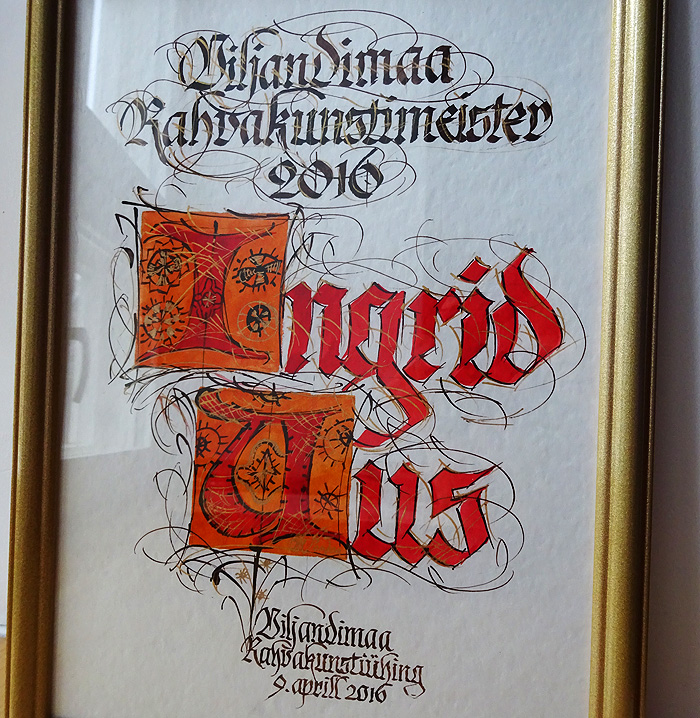 Viljandimaa
Rahvakunstimeister
2016
Ingrid
Uus
Viljandimaa
Rahvakunstiühing
9. aprill 2016